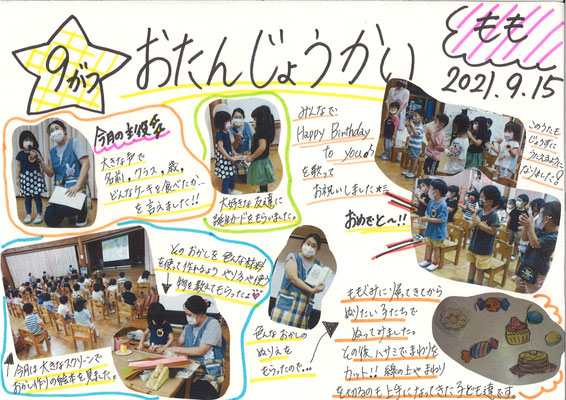 9がつ
おたんじょうかい
もも
2021.9.15
今月の主役
大きな声で
名前、クラス、歳、
どんなケーキを食べたか…
を言えました!!
大好きな友達に
誕生カードをもらいました。
みんなで
Happy Birthday
to you♪
を歌って
お祝いしました
おめでと〜!!
このうたも
じょうずに
うたえるように
なりました!
今月は大きなスクリーンで
おかし作りの絵本を見ました。
そのおかしを色んな材料
を使って作れるよう やり方や使う
物を教えてもらったよ♥
色んなおかしの
ぬりえを
もらったので…
ももぐみに帰ってきてから
ぬりたい子たちで
ぬってみました。
その後ハサミでまわりを
カット!! 線の上やまわり
を切るのも上手になってきた子ども達です。